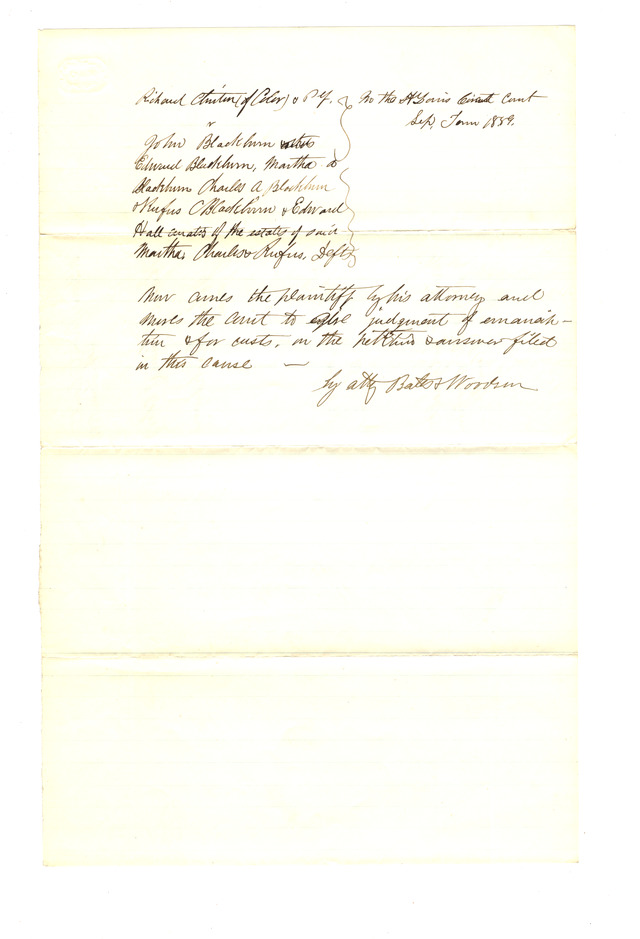 Richard Clinton (of Color) & Pl'ff.
v
John Blackburn
Edward Blackburn, Martha a
Blackburn Charles A Blackburn
& Rufus C Blackburn & Edward
Hall curator of the estates of said
Martha, Charles & Rufus, Defts
In the St Louis Circuit Court
Sep, Term 1859.
Now comes the plaintiff by his attorney and
moves the Court to judgment of emancipa-
tion & for costs, on the petition & answer filed
in this cause —
by atty Bates & Woodson